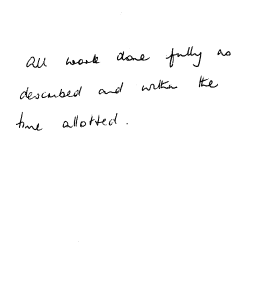 All work done fully as
described and within the
time allotted.